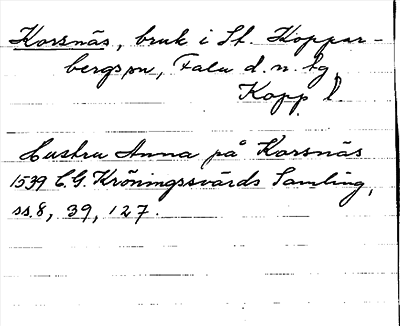 Korsnäs, bruk i St. Koppar-
bergs sn, Falu d. n. tg
Kopp. l.
Hustru Anna på Korsnäs
1539 C.G. Kröningssvärds Samling,
ss. 8, 39, 127.